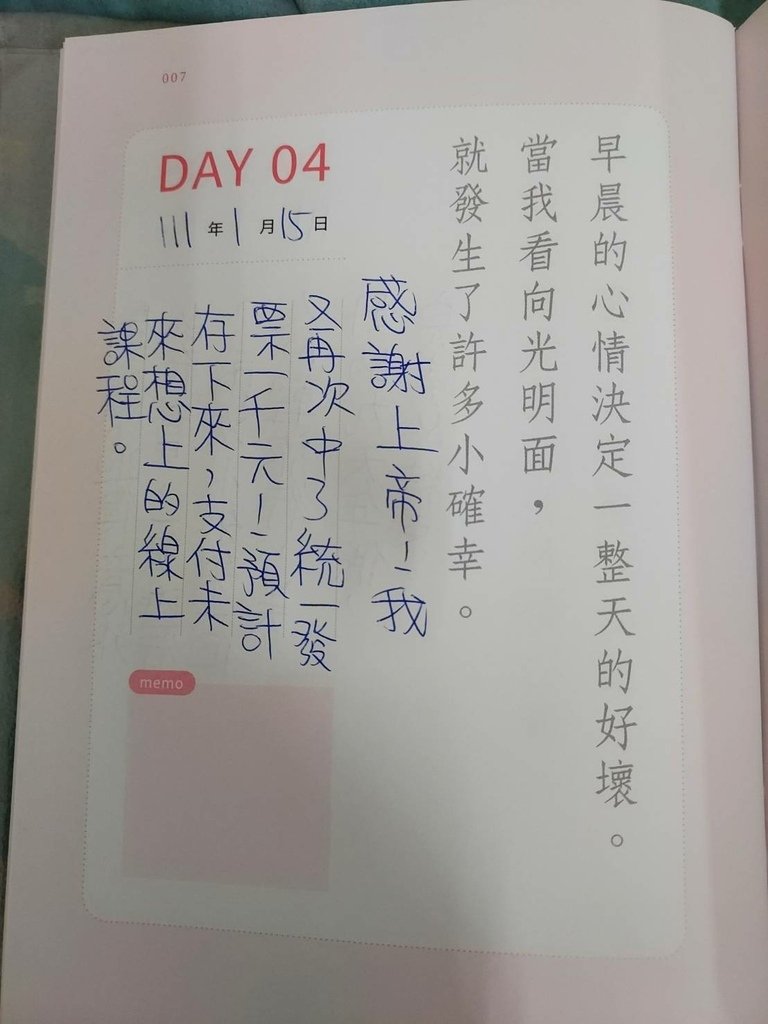 007
DAY 04
111年1月15日
早晨的心情決定一整天的好壞。
當我看向光明面，
就發生了許多小確幸。
感謝上帝！我
又再次中了統一發
票一千元！預計
存下來，支付未
來想上的線上
課程。
memo